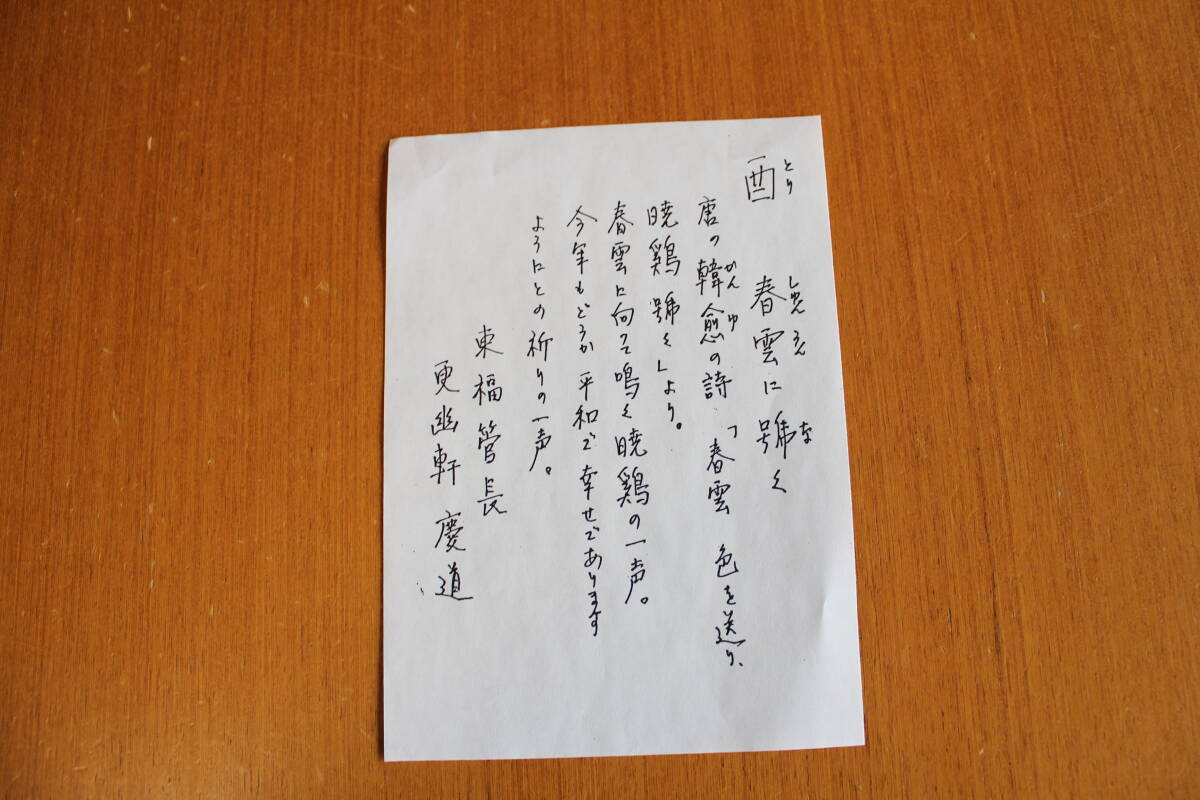 酉 春雲に號く
とり しゅんうん な
唐の韓愈の詩「春雲 色を送り、
かん ゆ
暁鷄號く」より。
春雲に向って鳴く暁鷄の一声。
今年もどうか平和で幸せであります
ようにとの祈りの一声。
東福管長
更幽軒 慶道